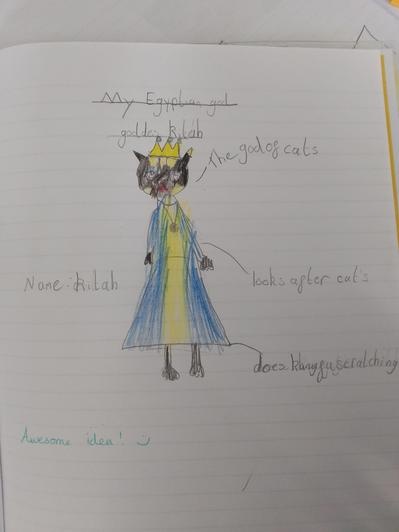 My Egyptian god
goddes kitah
The god of cats
Name: kitah
looks after cat's
does kungfu scratching
Awesome idea! :)